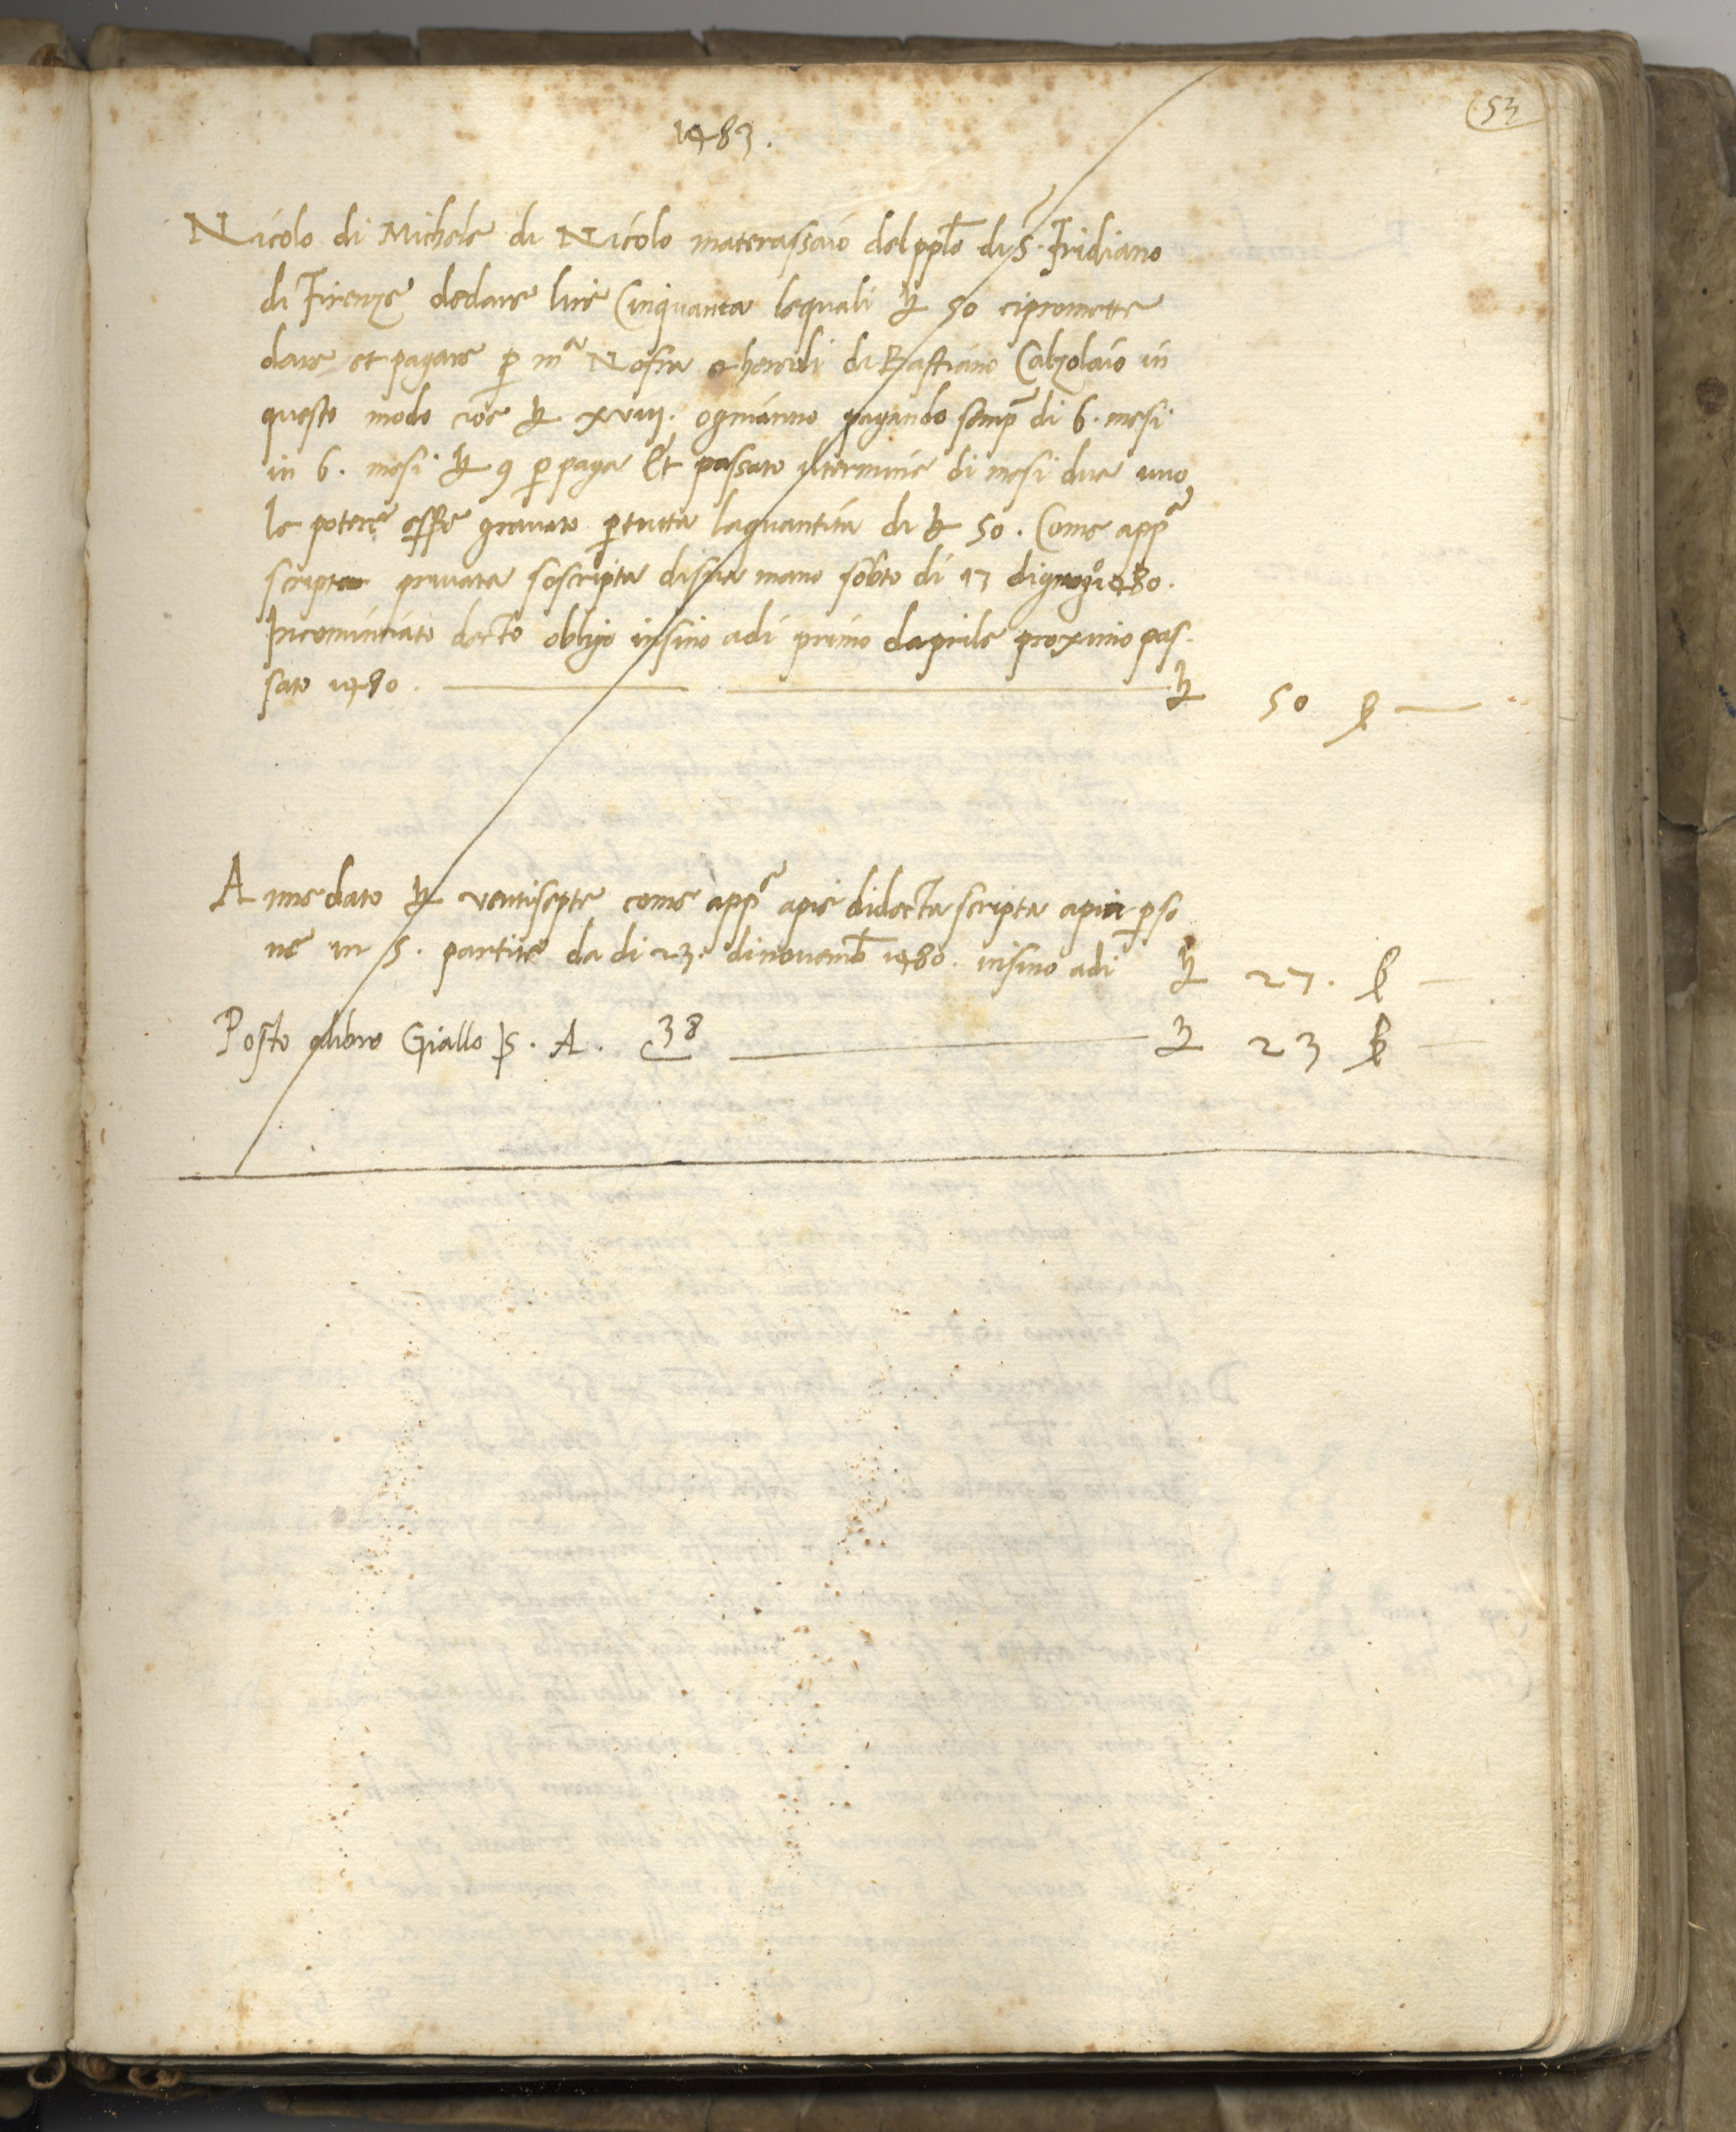 53
1483.
Nicolo di Michele di Nicolo materassaio del pplo di S. Fridiano
di Firenze dedare lire Cinquanta lequali ₶ 50 cipromette
dare et pagare p mª Nofra et heredi di Bastiano Calzolaio in
questo modo cioe ₶. xviij. ognianno pagando semp di 6. mesi
in 6. mesi ₶ 9 p paga Et passato iltermine di mesi due uno
lo potere essere gravato p tutta laquantita di ₶ 50. Come appª
scripta privata soscripta disua mano sotto di 17 di giugº 1480.
Incominciato decto obligo insino adi primo daprile proximo pas-
sato 1480. ₶ 50 ß —
A mme dato ₶ ventisepte come appª apie didecta scripta apiu pso
ne in 5. partite da di 23. dinovemb 1480. insino adi ₶ 27. ß —
Posto alibro Giallo S. A. 38 ₶ 23 ß —